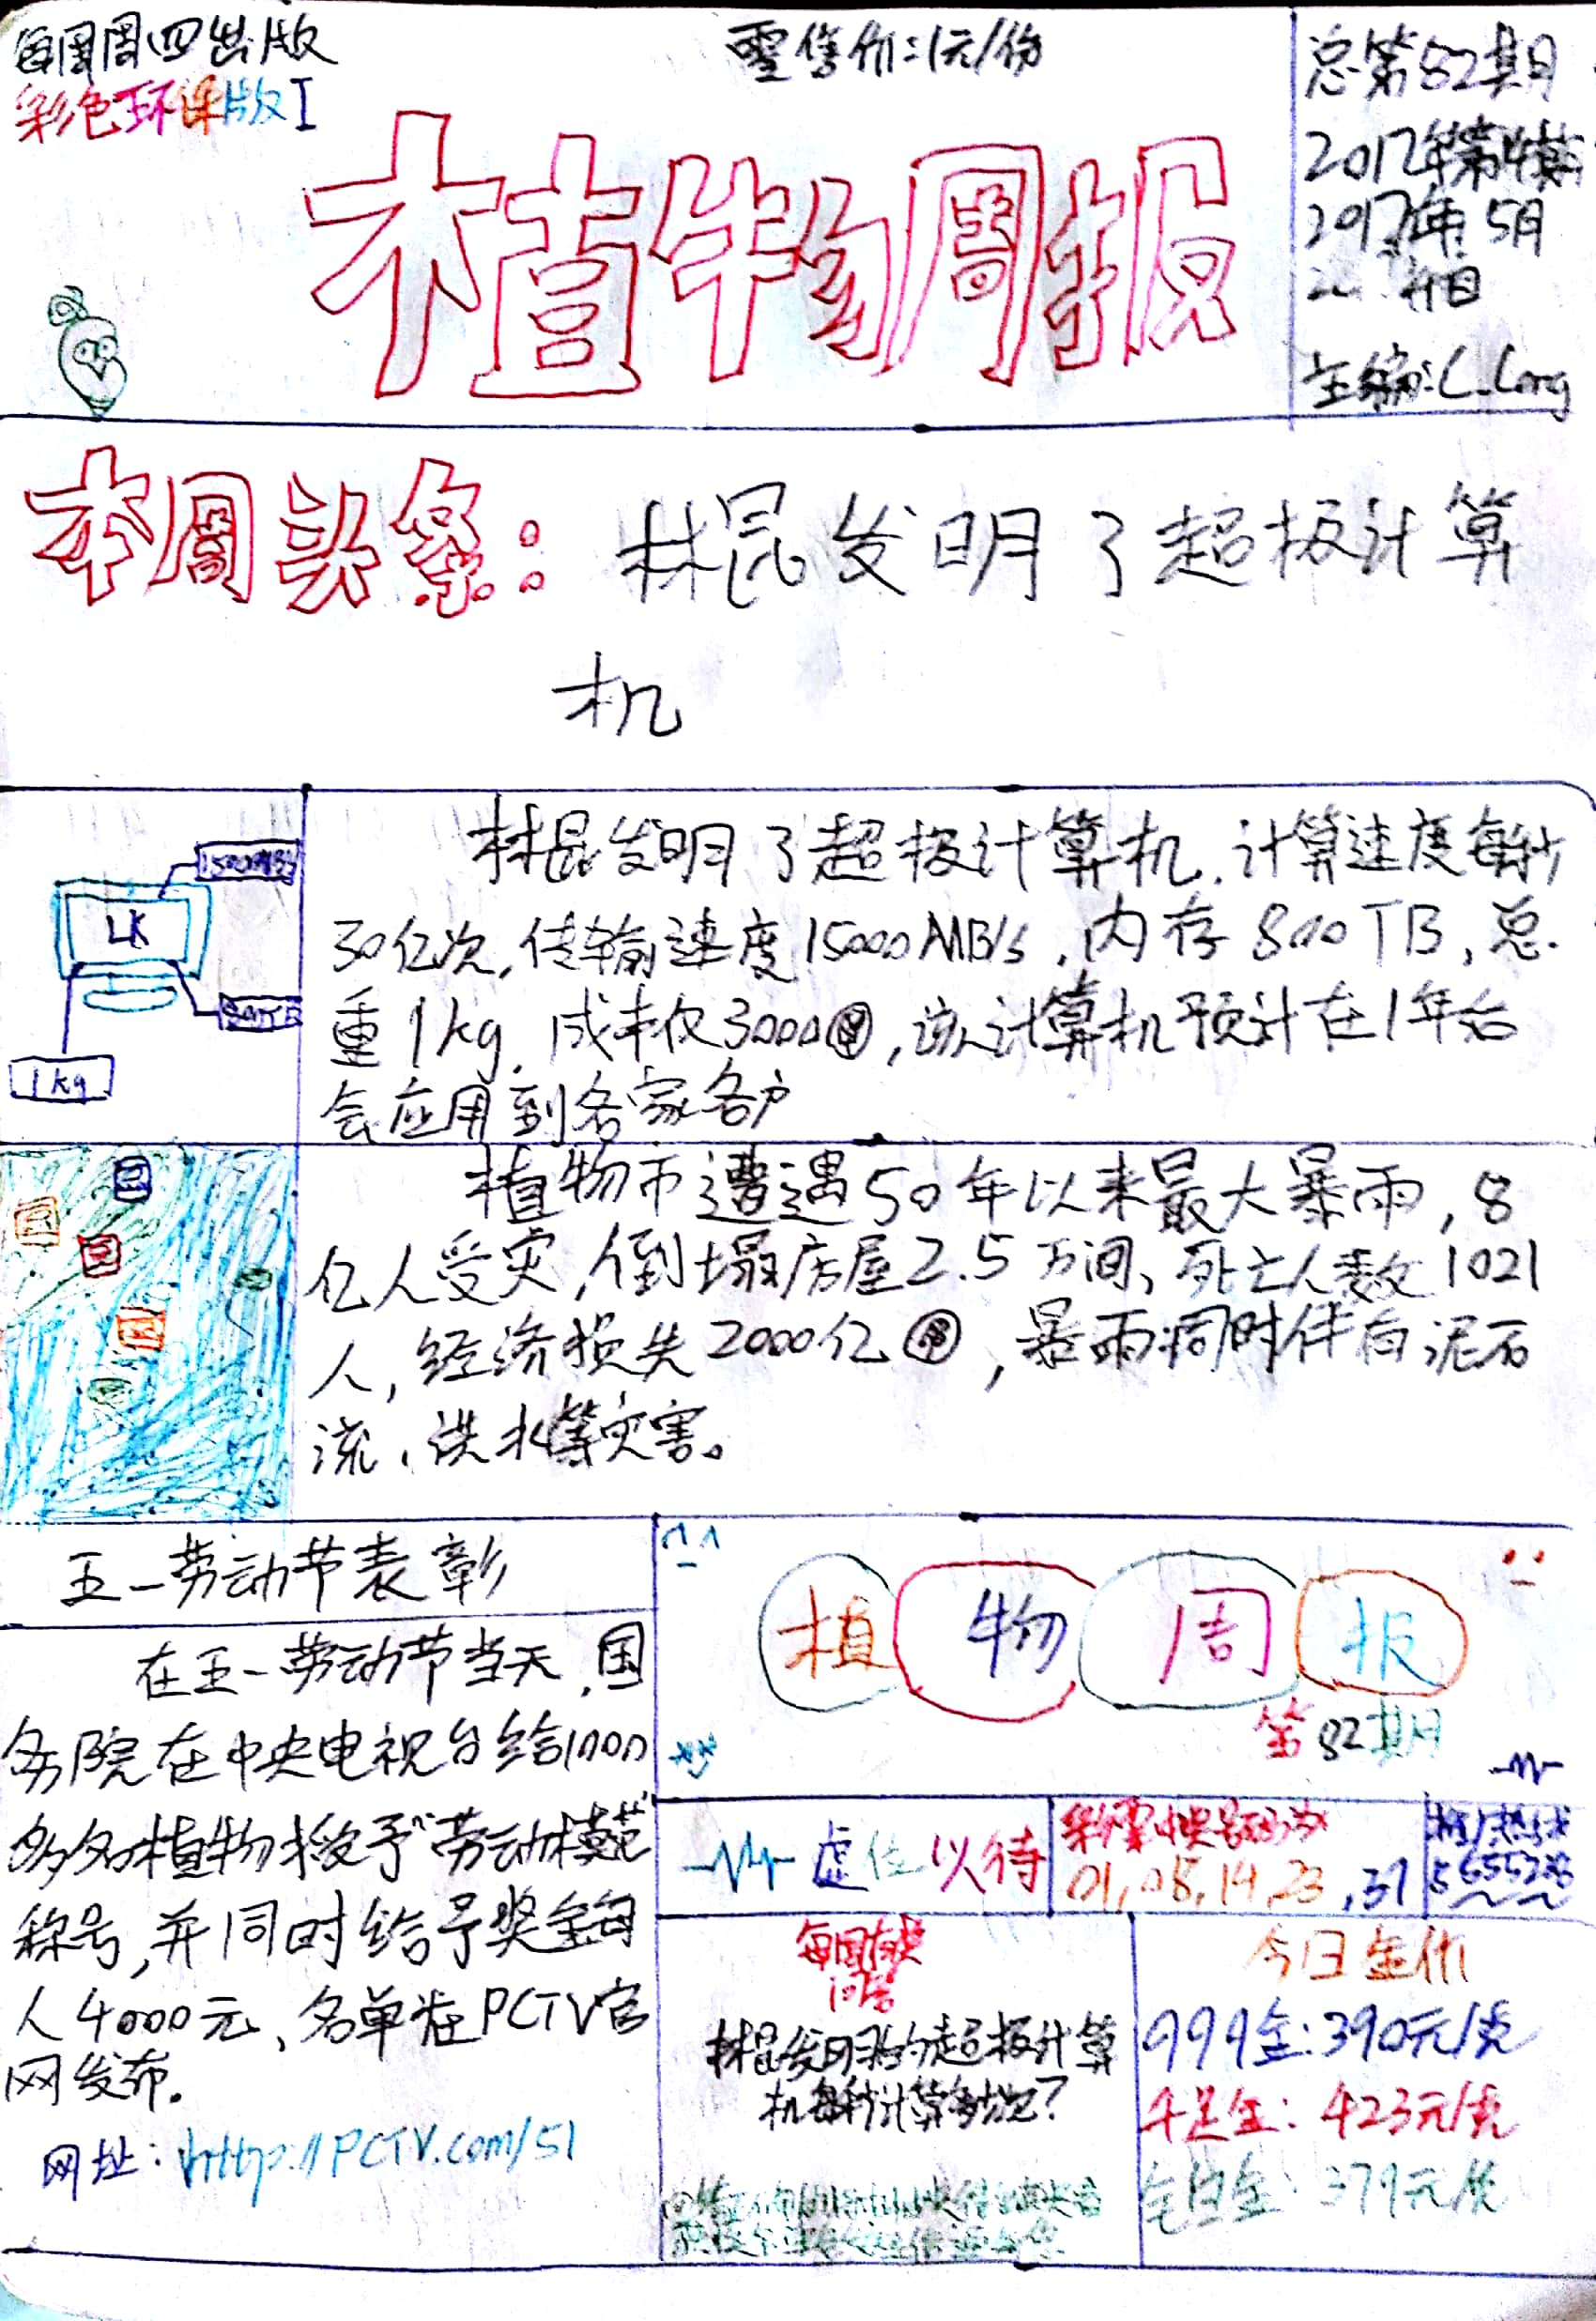 每周周四出版
彩色环保版I
零售价:1元/份
植物周报
总第82期
2017年第
2017年5月
日
主编:L.Long
本周头条:林昆发明了超极计算
机
LK
1kg
林昆发明了超极计算机,计算速度每秒
30亿次,传输速度15000MB/s,内存800TB,总
重1kg,成本仅3000,该计算机预计在1年后
会应用到各家各户
植物市遭遇50年以来最大暴雨,8
亿人受灾,倒塌房屋2.5万间,死亡人数1021
人,经济损失2000亿,暴雨同时伴有泥石
流,洪水等灾害。
五一劳动节表彰
在五一劳动节当天,国
务院在中央电视台给1000
多名植物授予"劳动模范"
称号,并同时给予奖金每
人4000元,名单在PCTV官
网发布。
网址:http://PCTV.com/51
植物周报
第82期
虚位以待
彩票中奖号码为
01,08,19,23,37
每周有奖
问答
林昆发明的超极计算
机每秒计算多少次?
今日金价
999金:390元/克
千足金:423元/克
379元/克